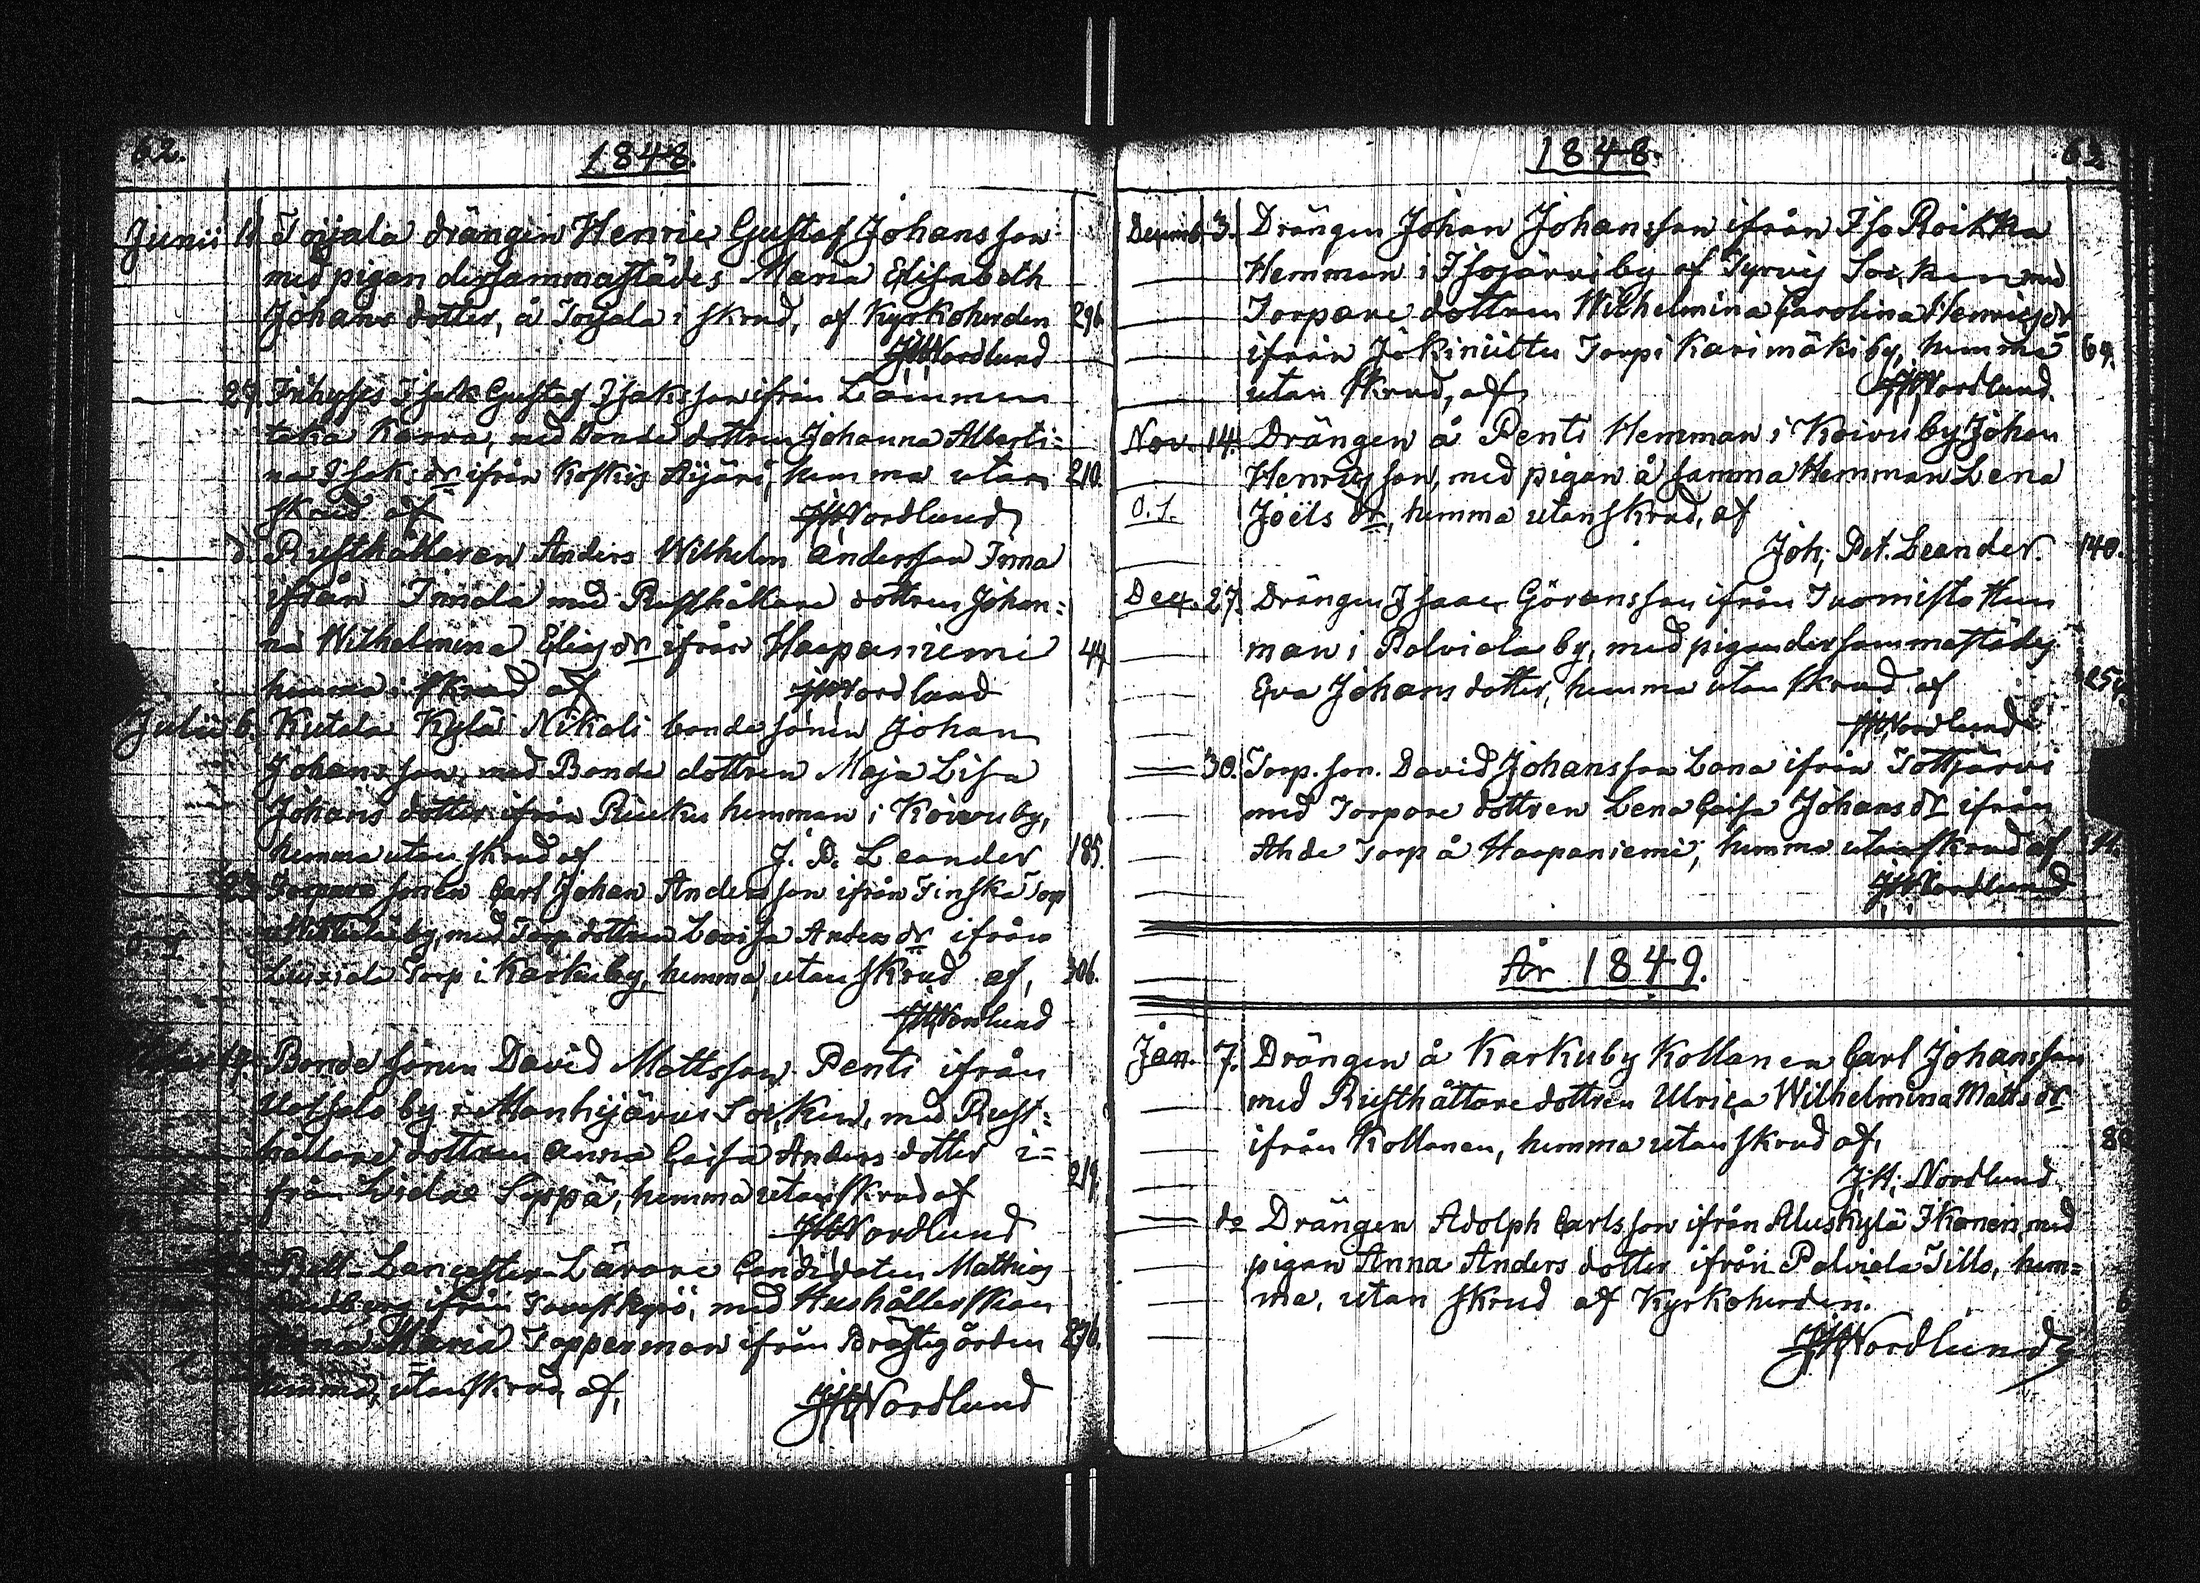 62.
1848.
Junii 11 Toijala drängen Henric Gustaf Johansson
med pigan dersammastädes Maria Elisabeth
Johans dotter, å Toijala i skrud, af Kyrkoherden 296
JHNordlund
29. Inhyses Isak Gustaf Isaksson ifrån
taka Karra, med Bonde dottren Johanna Alberti=
na Isaks dr ifrån Koskis Äijärä, hemma utan 210.
skrud af JHNordlund
d. Rusthållaren Anders Wilhelm Andersson Inna
ifrån Innala med Rusthållare dottren Johan=
na Wilhelmina Elias dr ifrån Haapaniemi 44
hemma i skrud af JHNordlund
Julii 6. Kutala Kylä Nikali bonde sonen Johan
Johansson, med Bonde dottren Maja Lisa
Johans dotter ifrån hemman i Koivu by,
hemma utan skrud af J. P. Leander 185.
23 Torpare sonen Carl Johan Andersson ifrån Finska Torp
by, med Torp. dottren Lovisa Anders dr ifrån
Torp i Karkuby, hemma utan skrud af, 306.
JHNordlund
Bonde sonen David Mattsson Penti ifrån
by i Mouhijärvi Socken, med Rust=
hållare dottren Anna Caisa Anders dotter i=
från Syppä, hemma utan skrud af 219.
JHNordlund
Bell-Lancaster-Lärare Candidaten Mathias
ifrån Tavastkyrö, med Hushållerskan
Anna Maria Topperman ifrån Prästgården 276.
hemma, utan skrud af,
JHNordlund
1848.
63
Decemb. 3. Drängen Johan Johansson ifrån Iso Roikka
Hemman i Isojärvi by af Tyrvis Socken med
Torpare dottren Wilhelmina Carolina Henrics dr
ifrån Jokiniittu Torp i Karimäki by, hemma 69.
utan skrud, af JHNordlund.
Nov. 14. Drängen å Penti Hemman i Koivu by Johan
Henricsson, med pigan å samma Hemman Lena
O.S. Joëls dr, hemma utan skrud, af
Joh: Pet. Leander. 140.
Dec. 27. Drängen Isaac Göransson ifrån Tuomisto Hem
man i Palviala by, med pigan dersammastädes
Eva Johans dotter, hemma utan skrud af 254.
JHNordlund
30. Torp. son. David Johansson Lana ifrån Tottijärvi
med Torpare dottren Lena Caisa Johans dr ifrån
Ahde Torp å Haapaniemi, hemma utan skrud af
JHNordlund
År 1849.
Jan. 7. Drängen å Karkuby Kollanen Carl Johansson
med Rusthållare dottren Ulrica Wilhelmina Matts dr
ifrån Kollanen, hemma utan skrud af,
J,H, Nordlund
do Drängen Adolph Carlsson ifrån Aluskylä Ikonen, med
pigan Anna Anders dotter ifrån Palviala Tillo, hem=
ma, utan skrud af Kyrkoherden.
JHNordlund